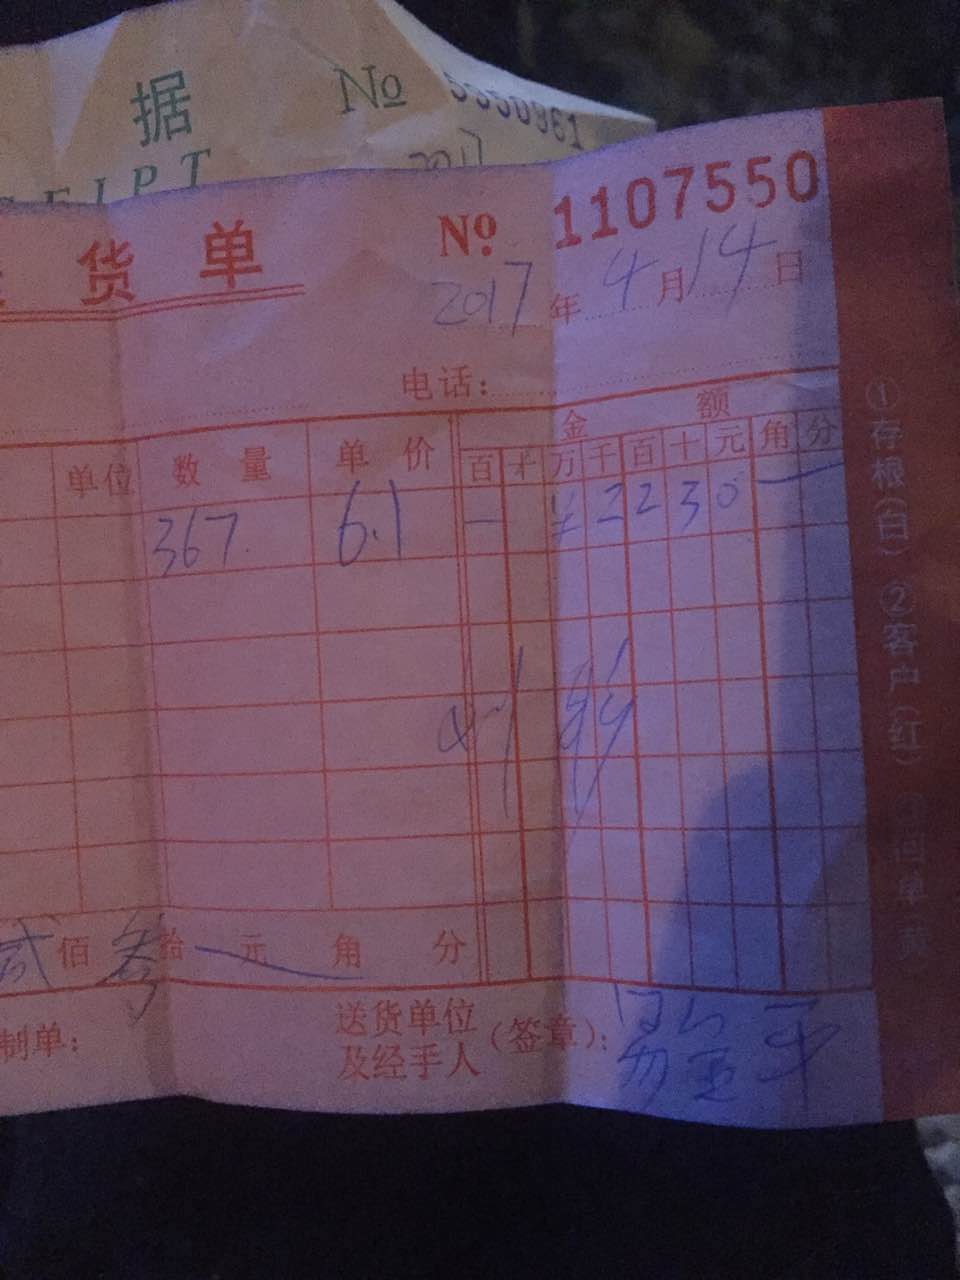 据 № 5550961
EIPT 2017
货单 № 1107550
2017年4月14日
电话：
金额
单位 数量 单价 百 十 万 千 百 十 元 角 分
367 6.1 — ¥ 2 2 3 0 —
贰佰叁拾一元 角 分
制单： 送货单位及经手人（签章）：
①存根（白）②客户（红）③回单（黄）